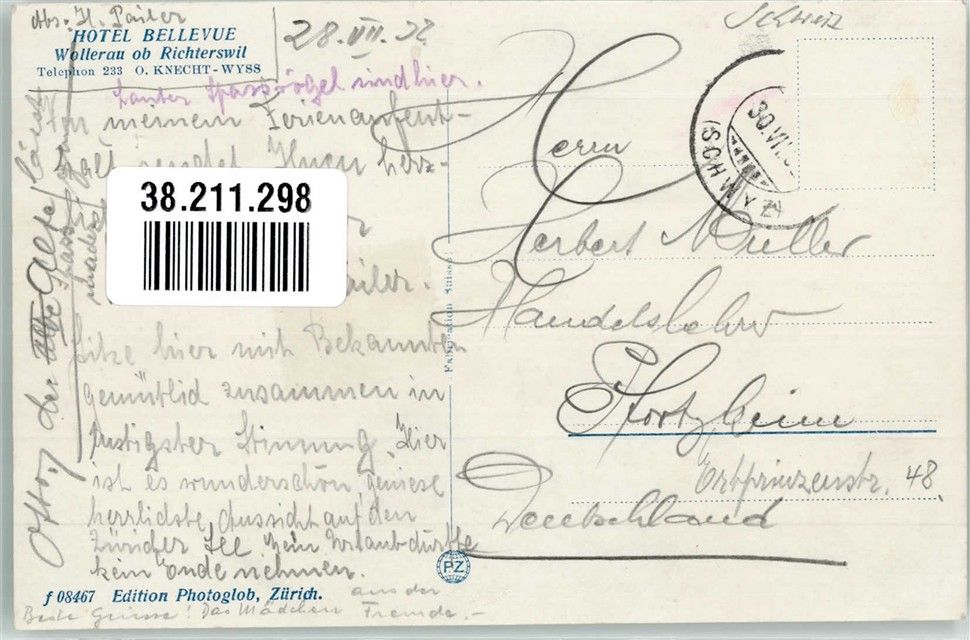 Abs. H. Pailer
HOTEL BELLEVUE
Wollerau ob Richterswil
Telephon 233 O. KNECHT-WYSS
28.VII.32
Lauter Spassvögel sind hier.
In meinem Ferienaufent-
halt sendet Ihnen herz-
38.211.298
Pailer.
Sitze hier mit Bekannten
gemütlid zusammen in
lustigster Stimmung. Hier
ist es wunderschön, geniese
herrlidste Aussicht auf den
Züricher See. Mein Urlaub dürfte
kein Ende nehmen.
f 08467 Edition Photoglob, Zürich.
Beste Grüsse! Das Mädchen aus der
Fremde.-
Otto, der alte Alpe
Fabrication Suisse
PZ
Schweiz
30.VII.
(SCHWYZ)
Herrn
Herbert Müller
Handelslehrer
Pforzheim
Erbprinzenstr. 48.
Deutschland